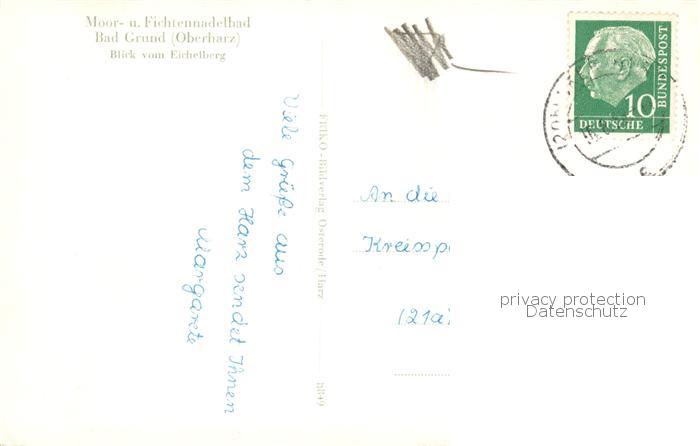 Moor- u. Fichtennadelbad
Bad Grund (Oberharz)
Blick vom Eichelberg
Viele Grüße aus
dem Harz sendet Ihnen
Margarete
FRIKO-Bildverlag Osterode/Harz
8849
An die
Kreissp
(21a)
10
DEUTSCHE
BUNDESPOST
privacy protection
Datenschutz